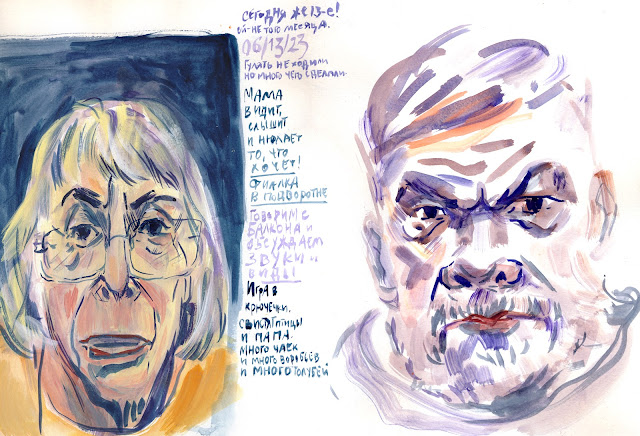 СЕГОДНЯ ЖЕ 13-е!
ОЙ-НЕ ТОГО МЕСЯЦА.
06/13/23
ГУЛЯТЬ НЕ ХОДИЛИ
НО МНОГО ЧЕГО СДЕЛАЛИ.
МАМА
ВИДИТ,
СЛЫШИТ
И НЮХАЕТ
ТО, ЧТО
ХОЧЕТ!
ФИАЛКА
В ПОДВОРОТНЕ
ГОВОРИМ С
БАЛКОНА И
ОБСУЖДАЕМ
ЗВУКИ И
ВИДЫ
ИГРА В
КРЮЧЕЧКИ.
СВИСТЯТ ПТИЦЫ
И ПАПА.
МНОГО ЧАЕК
И МНОГО ВОРОБЬЕВ
И МНОГО ГОЛУБЕЙ